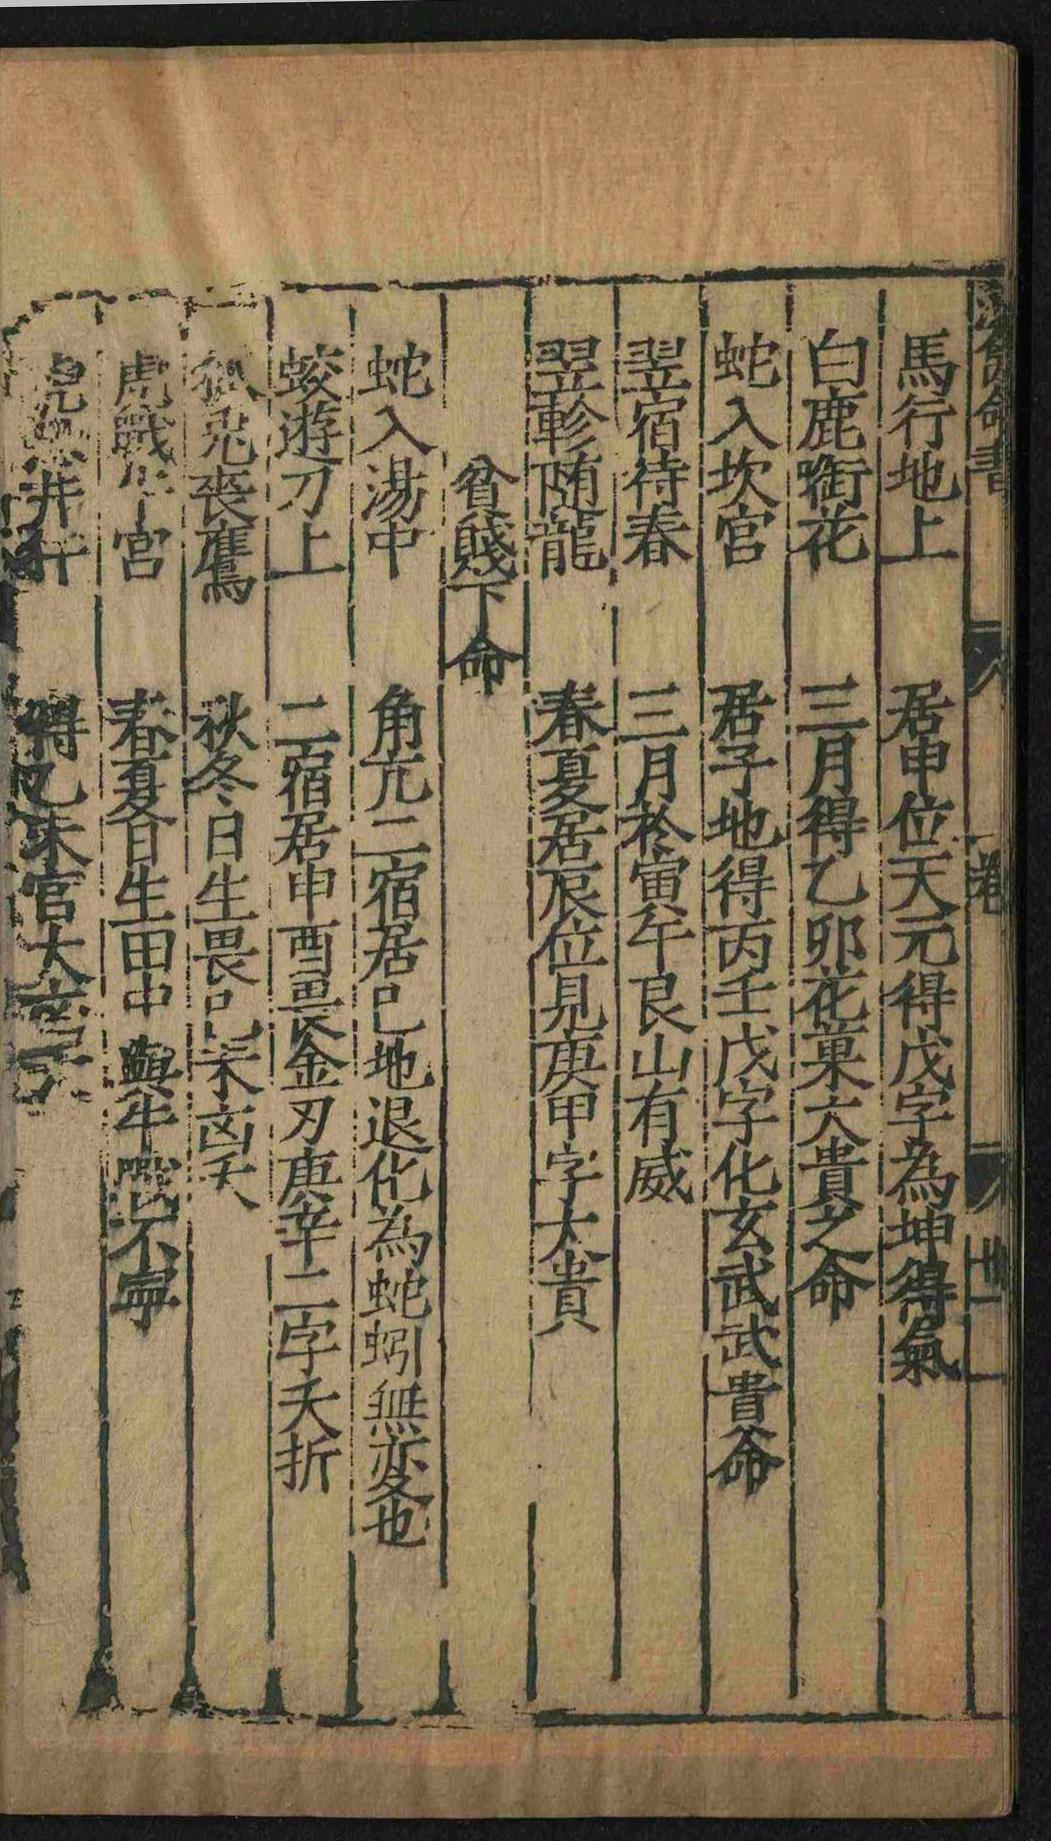 馬行地上　居申位天元得戊字為坤得氣
白鹿銜花　三月得乙卯花菓大貴之命
蛇入坎宮　居子地得丙壬戊字化玄武武貴命
翌宿待春　三月於寅午艮山有威
翌軫随龍　春夏居辰位見庚甲字大貴
貧賤下命
蛇入湯中　角亢二宿居巳地退化為蛇蚓無变也
蛟遊刀上　二宿居申酉畏金刃庚辛二字夭折
狐兎喪鷹　秋冬日生畏巳未凶夭
虎戰牛宮　春夏日生田中與牛戰不寕
虎井　得乙未官大
命書
卷
卅二